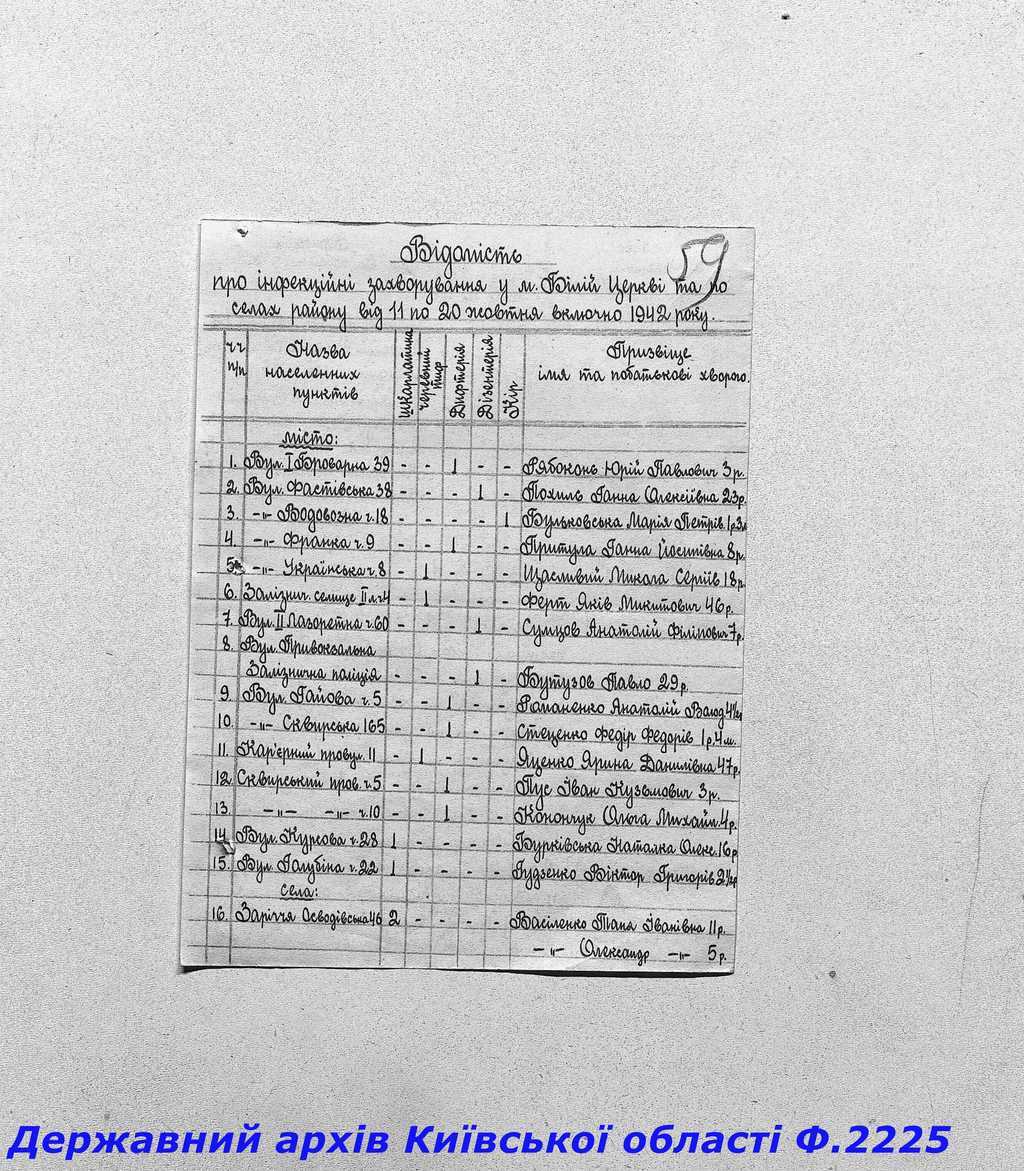 59
Відомість
про інфекційні захворування у м. Білій Церкві та по
селах району від 11 по 20 жовтня включно 1942 року.
ч.ч. п/п Назва населенних пунктів Шкарлатина Черевний тиф Дифтерія Дізентерія Кір Призвіще імя та побатькові хворого.
місто:
1. Вул. І Броварна 39 - - 1 - - Рябоконь Юрій Павлович 3 р.
2. Вул. Фастівська 38 - - - 1 - Похиль Ганна Олексіївна 23 р.
3. -„- Водовозна ч. 18 - - - - 1 Бульковська Марія Петрів. 1 р. 3 м
4. -„- Франка ч. 9 - - 1 - - Притула Ганна Йосипівна 8 р.
5. -„- Українська ч. 8 - 1 - - - Щасливий Микола Сергіїв 18 р.
6. Залізнич. селище ІІ л. ч 4 - 1 - - - Ферт Яків Микитович 46 р.
7. Вул. ІІ Лазоретна ч. 60 - - - 1 - Сумцов Анатолій Філіпович 7 р.
8. Вул. Привокзальна
Залізнична поліція - - - 1 - Бутузов Павло 29 р.
9. Вул. Гайова ч. 5 - - 1 - - Романенко Анатолій Волод.
10. -„- Сквирська 165 - - 1 - - Стеценко Федір Федорів 1 р. 4 м.
11. Кар'єрний провул. 11 - 1 - - - Яценко Ярина Данилівна 47 р.
12. Сквирський пров. ч. 5 - - 1 - - Пус Іван Кузьмович 3 р.
13. -„- -„- ч. 10 - - 1 - - Конончук Ольга Михайл. 4 р.
14. Вул. Курсова ч. 28 1 - - - - Бурківська Наталка Олекс. 16 р
15. Вул. Голубіна ч. 22 1 - - - - Гудзенко Віктор Григорів.
села:
16. Заріччя Осводівська 46 2 - - - - Василенко Таня Іванівна 11 р.
-„- Олександр -„- 5 р.
Державний архів Київської області Ф.2225